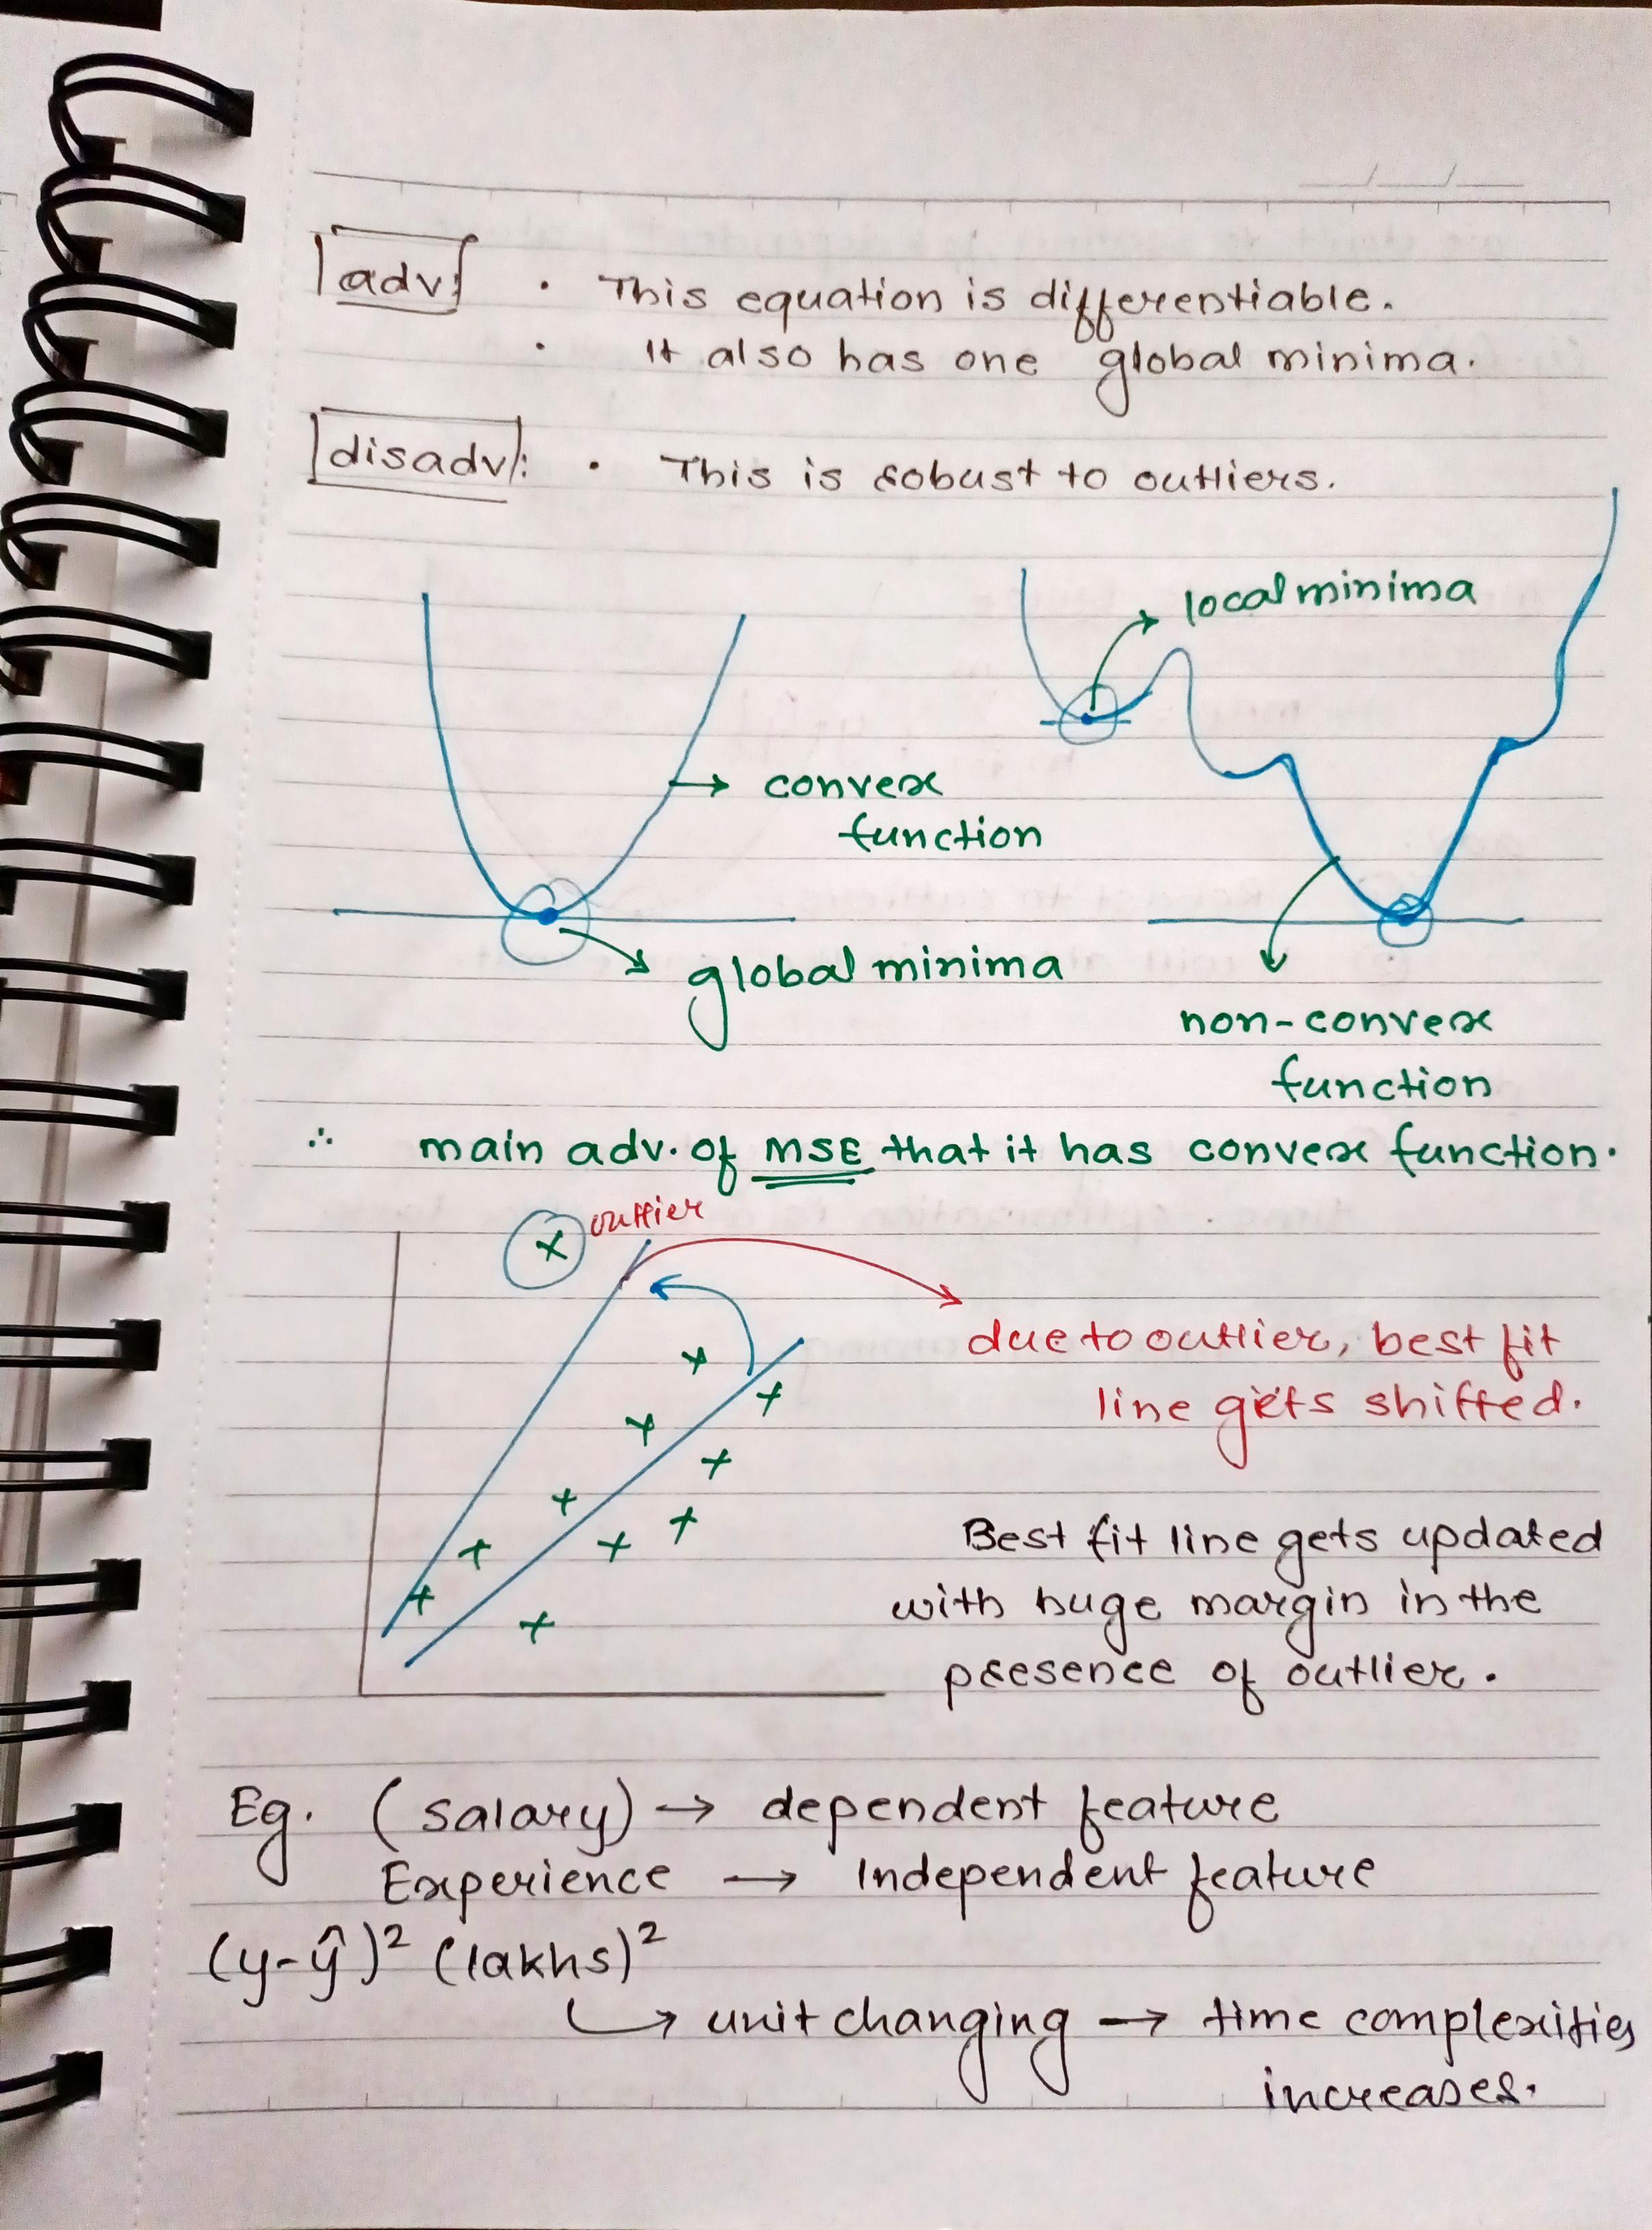 adv:
· This equation is differentiable.
· It also has one global minima.
disadv: · This is robust to outliers.
local minima
convex
function
global minima
non-convex
function
∴ main adv. of MSE that it has convex function.
outlier
due to outlier, best fit
line gets shifted.
Best fit line gets updated
with huge margin in the
presence of outlier.
Eg. (salary) → dependent feature
Experience → Independent feature
(y-ŷ)² (lakhs)²
↳ unit changing → time complexities
increases.